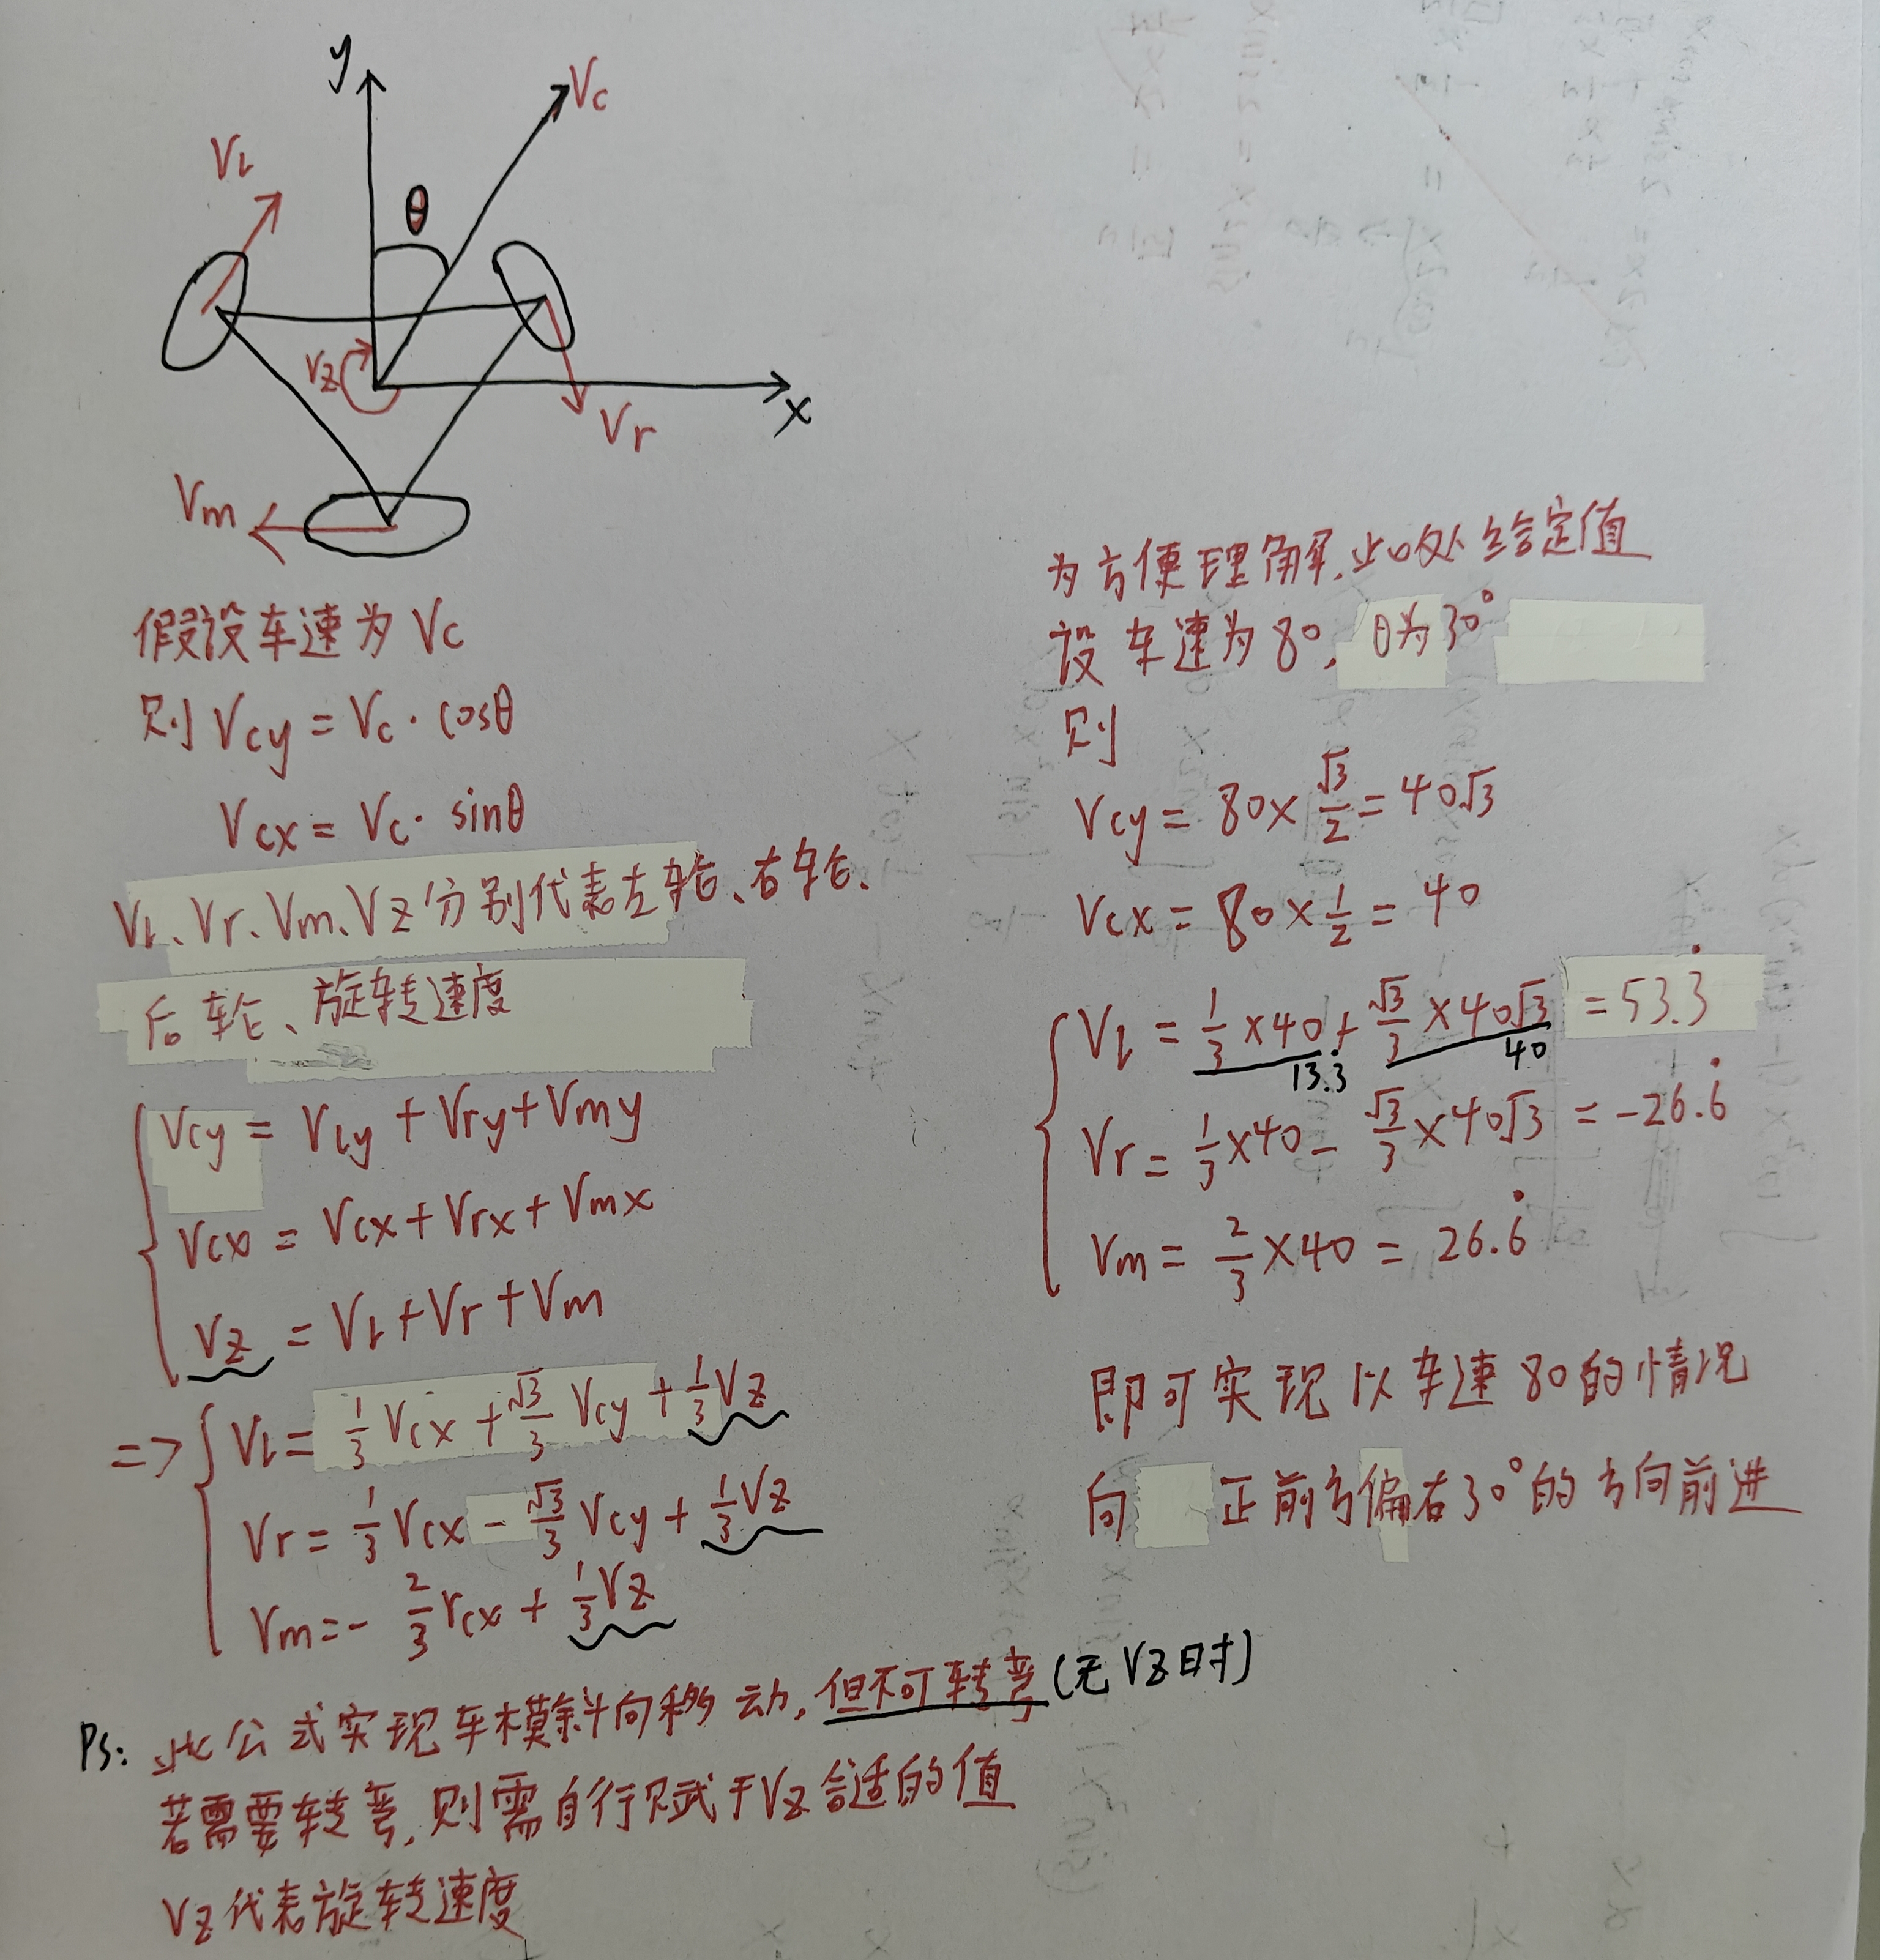 y
Vc
Vl
θ
Vz
x
Vr
Vm
假设车速为 Vc
则 Vcy = Vc · cosθ
Vcx = Vc · sinθ
Vl、Vr、Vm、Vz 分别代表左轮、右轮、
后轮、旋转速度
Vcy = Vly + Vry + Vmy
Vcx = Vcx + Vrx + Vmx
Vz = Vl + Vr + Vm
=> Vl = 1/3 Vcx + √3/3 Vcy + 1/3 Vz
Vr = 1/3 Vcx - √3/3 Vcy + 1/3 Vz
Vm = - 2/3 Vcx + 1/3 Vz
Ps: 此公式实现车模斜向移动,但不可转弯(无Vz时)
若需要转弯,则需自行赋于Vz合适的值
Vz代表旋转速度
为方便理解,此处给定值
设车速为80, θ为30°
则
Vcy = 80 × √3/2 = 40√3
Vcx = 80 × 1/2 = 40
Vl = 1/3 × 40 + √3/3 × 40√3 = 53.3̇
13.3̇ 40
Vr = 1/3 × 40 - √3/3 × 40√3 = -26.6̇
Vm = 2/3 × 40 = 26.6̇
即可实现以车速80的情况
向 正前方偏右30°的方向前进